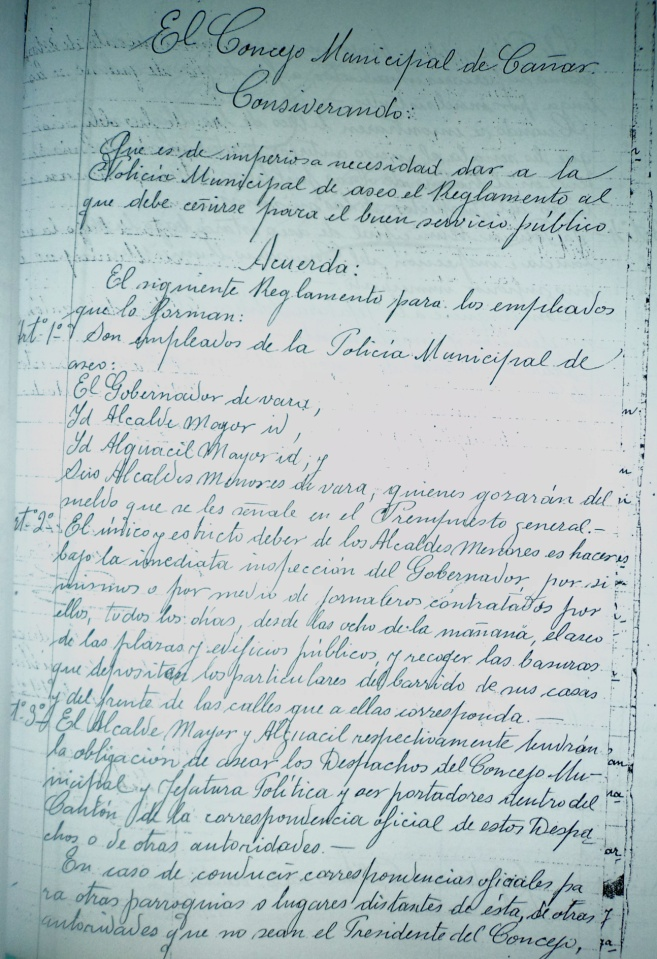 El Concejo Municipal de Cañar.
Consiverando:
Que es de imperiosa necesidad dar a la
Policía Municipal de aseo el Reglamento al
que debe ceñirse para el buen servicio público.
Acuerda:
El siguiente Reglamento para los empleados
que lo forman:
Art.º 1º Son empleados de la Policía Municipal de
aseo:
El Gobernador de vara,
Id Alcalde Mayor id,
Id Alguacil Mayor id, y
Seis Alcaldes Menores de vara, quienes gozarán del
sueldo que se les señale en el Presupuesto general.—
rt.º 2º El único y estricto deber de los Alcaldes Menores es hacer
bajo la inmediata inspección del Gobernador, por si
mismos o por medio de jornaleros contratados por
ellos, todos los días, desde las ocho de la mañana, el aseo
de las plazas y edificios públicos, y recoger las basuras
que depositen los particulares del barrido de sus casas
y del frente de las calles que a ellas corresponda.—
t.º 3º El Alcalde Mayor y Alguacil respectivamente tendrán
la obligación de asear los Despachos del Concejo Mu-
nicipal y Jefatura Política y ser portadores dentro del
Cantón, de la correspondencia oficial de estos Despa-
chos o de otras autoridades.—
En caso de conducir correspondencias oficiales pa
ra otras parroquias o lugares distantes de ésta, de otras
autoridades que no sean el Presidente del Concejo,